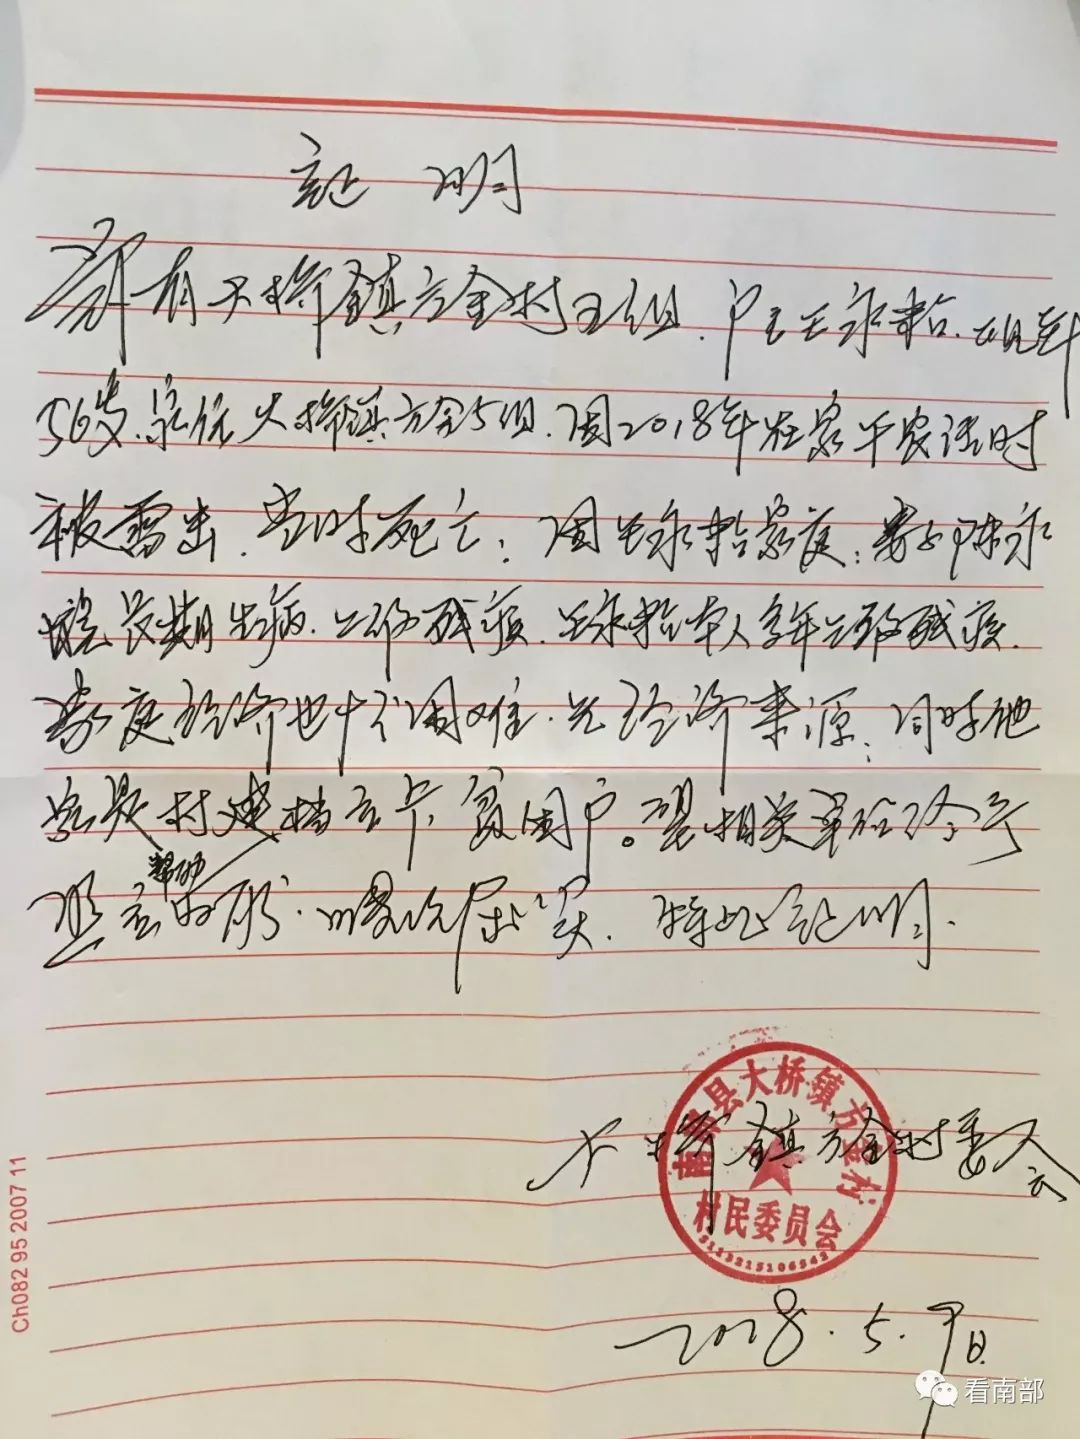 证 明
有大桥镇方全村五组,户主王永 现年
56岁.家住大桥镇方全5组.因2018年在家干农活时
被雷击.当时死亡;因王永 家庭;妻子陈永
长期生病.二级残疾.王永 本人多年二级残疾.
家庭经济也十分困难.无经济来源;同时他
家是村建档立卡贫困户。望相关单位给予
帮助
.情况属实.特此证明.
大桥镇方全村委会
2018.5.9日
南部县大桥镇方全村
村民委员会
Ch082 95 2007 11
看南部